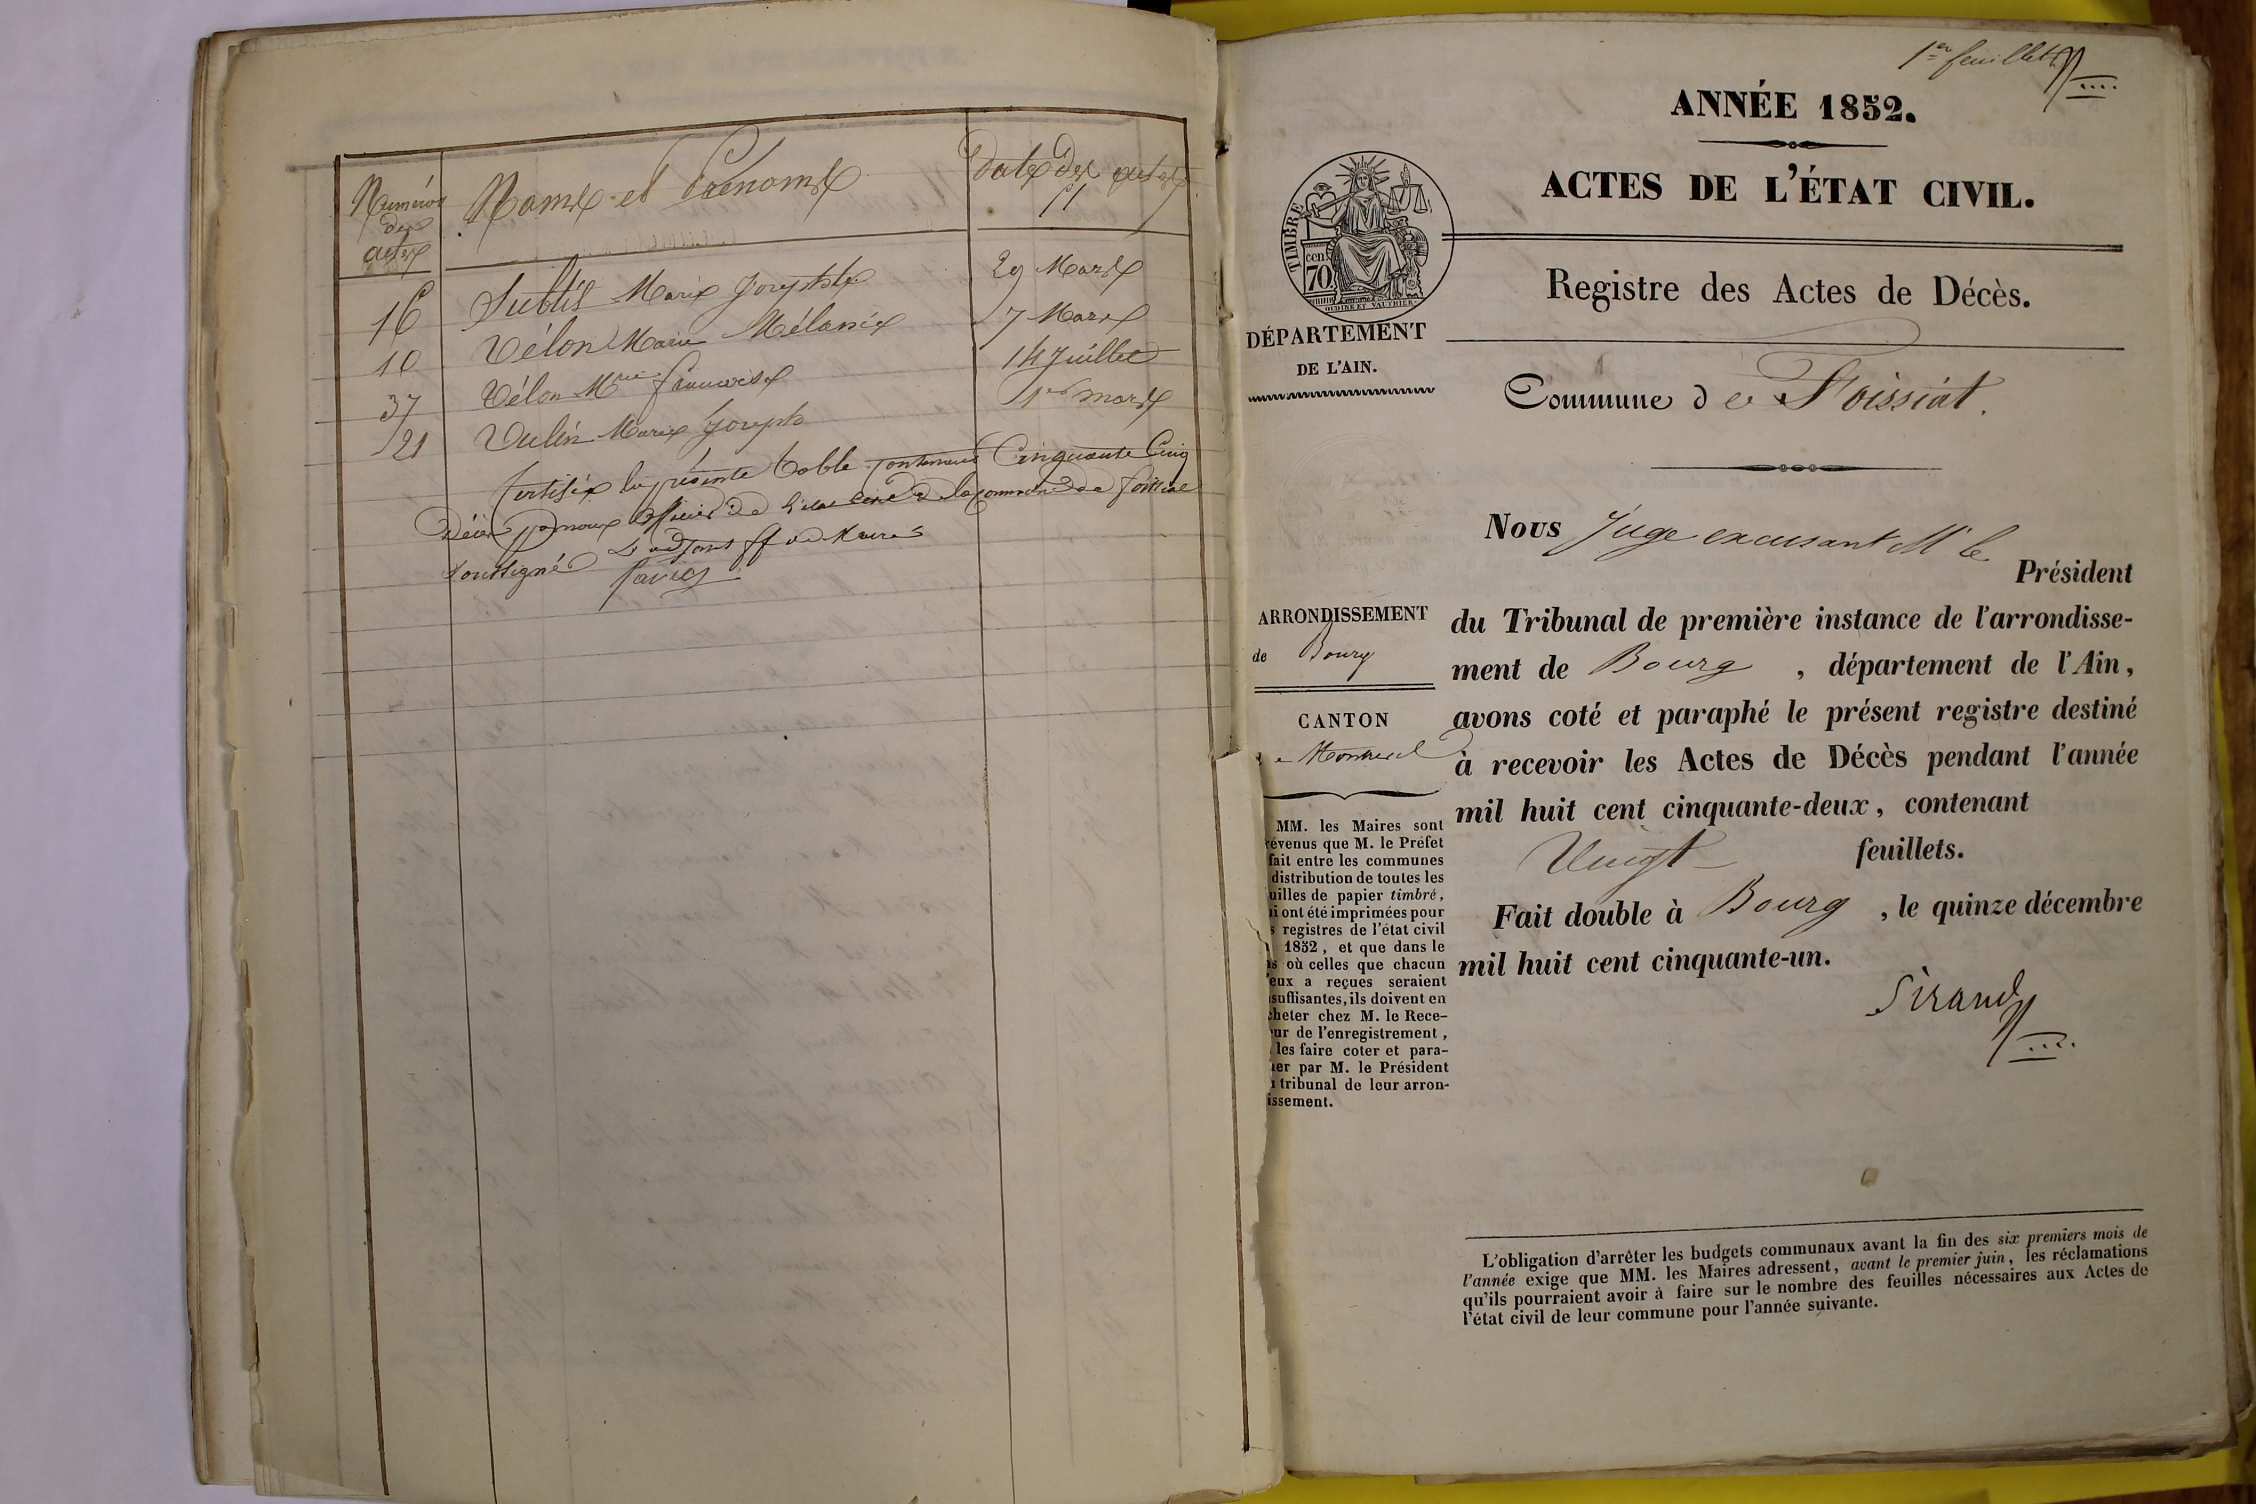 Numéros
des
actes
Noms et Prénoms
Date des actes
16 Subtil Marie Josephte 29 Mars
10 Vélon Marie Mélanie 7 Mars
37 Vélon Mie Francoise 14 Juillet
21 Vulin Marie Joseph 1er mars
Certifié la présente table contenant Cinquante Cinq
Décès par nous officier de l'état civil de la commune de foissiat
soussigné L'adjoint ff de Maire
1er feuillet
ANNÉE 1852.
ACTES DE L'ÉTAT CIVIL.
TIMBRE
cen.
70
OUDINE ET VAUTHIER
Registre des Actes de Décès.
DÉPARTEMENT
DE L'AIN.
Commune de Foissiat.
Nous Juge excusant Mr le
Président
du Tribunal de première instance de l'arrondisse-
ment de Bourg, département de l'Ain,
avons coté et paraphé le présent registre destiné
à recevoir les Actes de Décès pendant l'année
mil huit cent cinquante-deux, contenant
Vingt feuillets.
Fait double à Bourg, le quinze décembre
mil huit cent cinquante-un.
Sirand
ARRONDISSEMENT
de Bourg
CANTON
e Montrevel
MM. les Maires sont
révenus que M. le Préfet
fait entre les communes
distribution de toutes les
uilles de papier timbré,
i ont été imprimées pour
s registres de l'état civil
1852, et que dans le
as où celles que chacun
'eux a reçues seraient
suffisantes, ils doivent en
cheter chez M. le Rece-
eur de l'enregistrement,
les faire coter et para-
her par M. le Président
u tribunal de leur arron-
issement.
L'obligation d'arrêter les budgets communaux avant la fin des six premiers mois de
l'année exige que MM. les Maires adressent, avant le premier juin, les réclamations
qu'ils pourraient avoir à faire sur le nombre des feuilles nécessaires aux Actes de
l'état civil de leur commune pour l'année suivante.